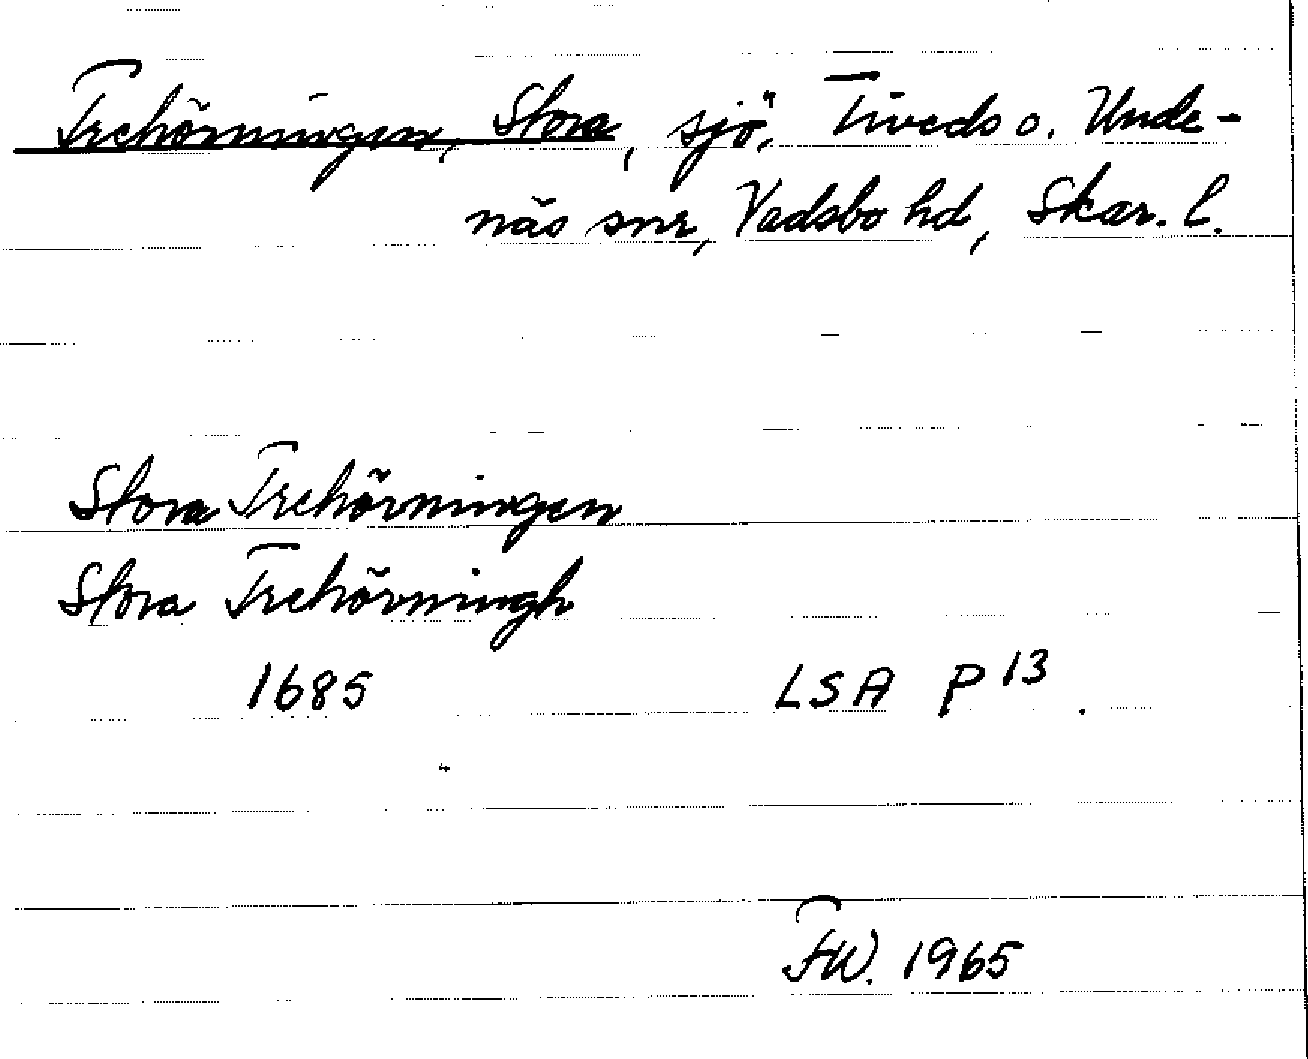 Trehörningen, Stora, sjö, Tiveds o. Unde-
näs snr, Vadsbo hd, Skar. l.
Stora Trehörningen
Stora Trehörningh
1685 LSA P 13.
FW. 1965